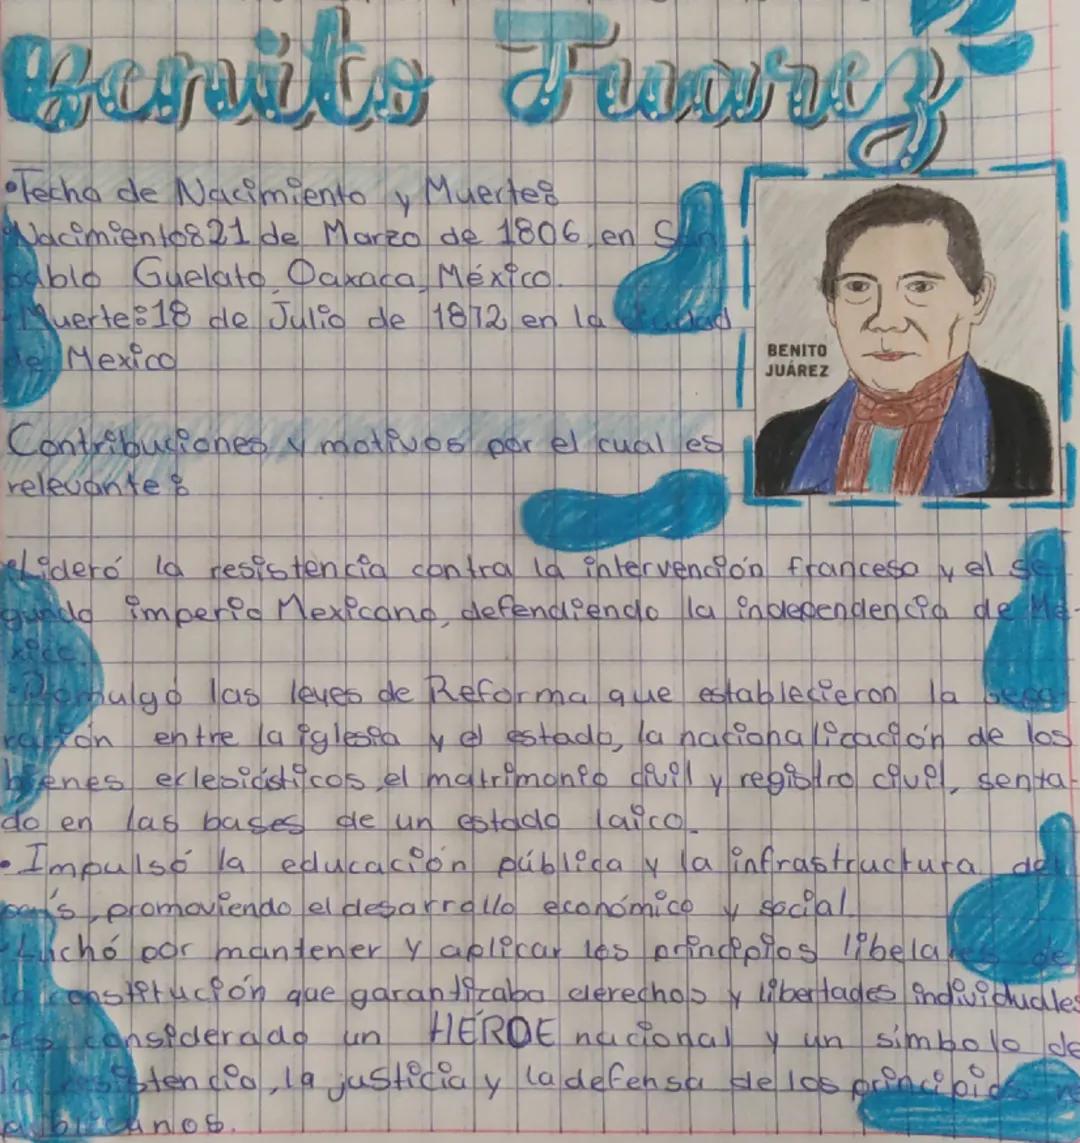 Benito Juarez
•Fecha de Nacimiento y Muerte:
Nacimiento:21 de Marzo de 1806, en San
pablo Guelato, Oaxaca, México.
-Muerte:18 de Julio de 1872 en la Ciudad
de Mexico
BENITO
JUÁREZ
Contribuciones y motivos por el cual es
relevante:
•Lideró la resistencia contra la intervención francesa y el se
gundo imperio Mexicano, defendiendo la independencia de Mé-
xico.
-Promulgó las leyes de Reforma que establecieron la sepa
ración entre la iglesia y el estado, la nacionalización de los
bienes eclesiásticos, el matrimonio civil y registro civil, senta-
do en las bases de un estado laico.
•Impulsó la educación pública y la infrastructura del
país, promoviendo el desarrollo económico y social.
-Luchó por mantener y aplicar los principios libelares de
la constitución que garantizaba derechos y libertades individuales
-Es considerado un HÉROE nacional y un símbolo de
la resistencia, la justicia y la defensa de los principios re
publicanos.